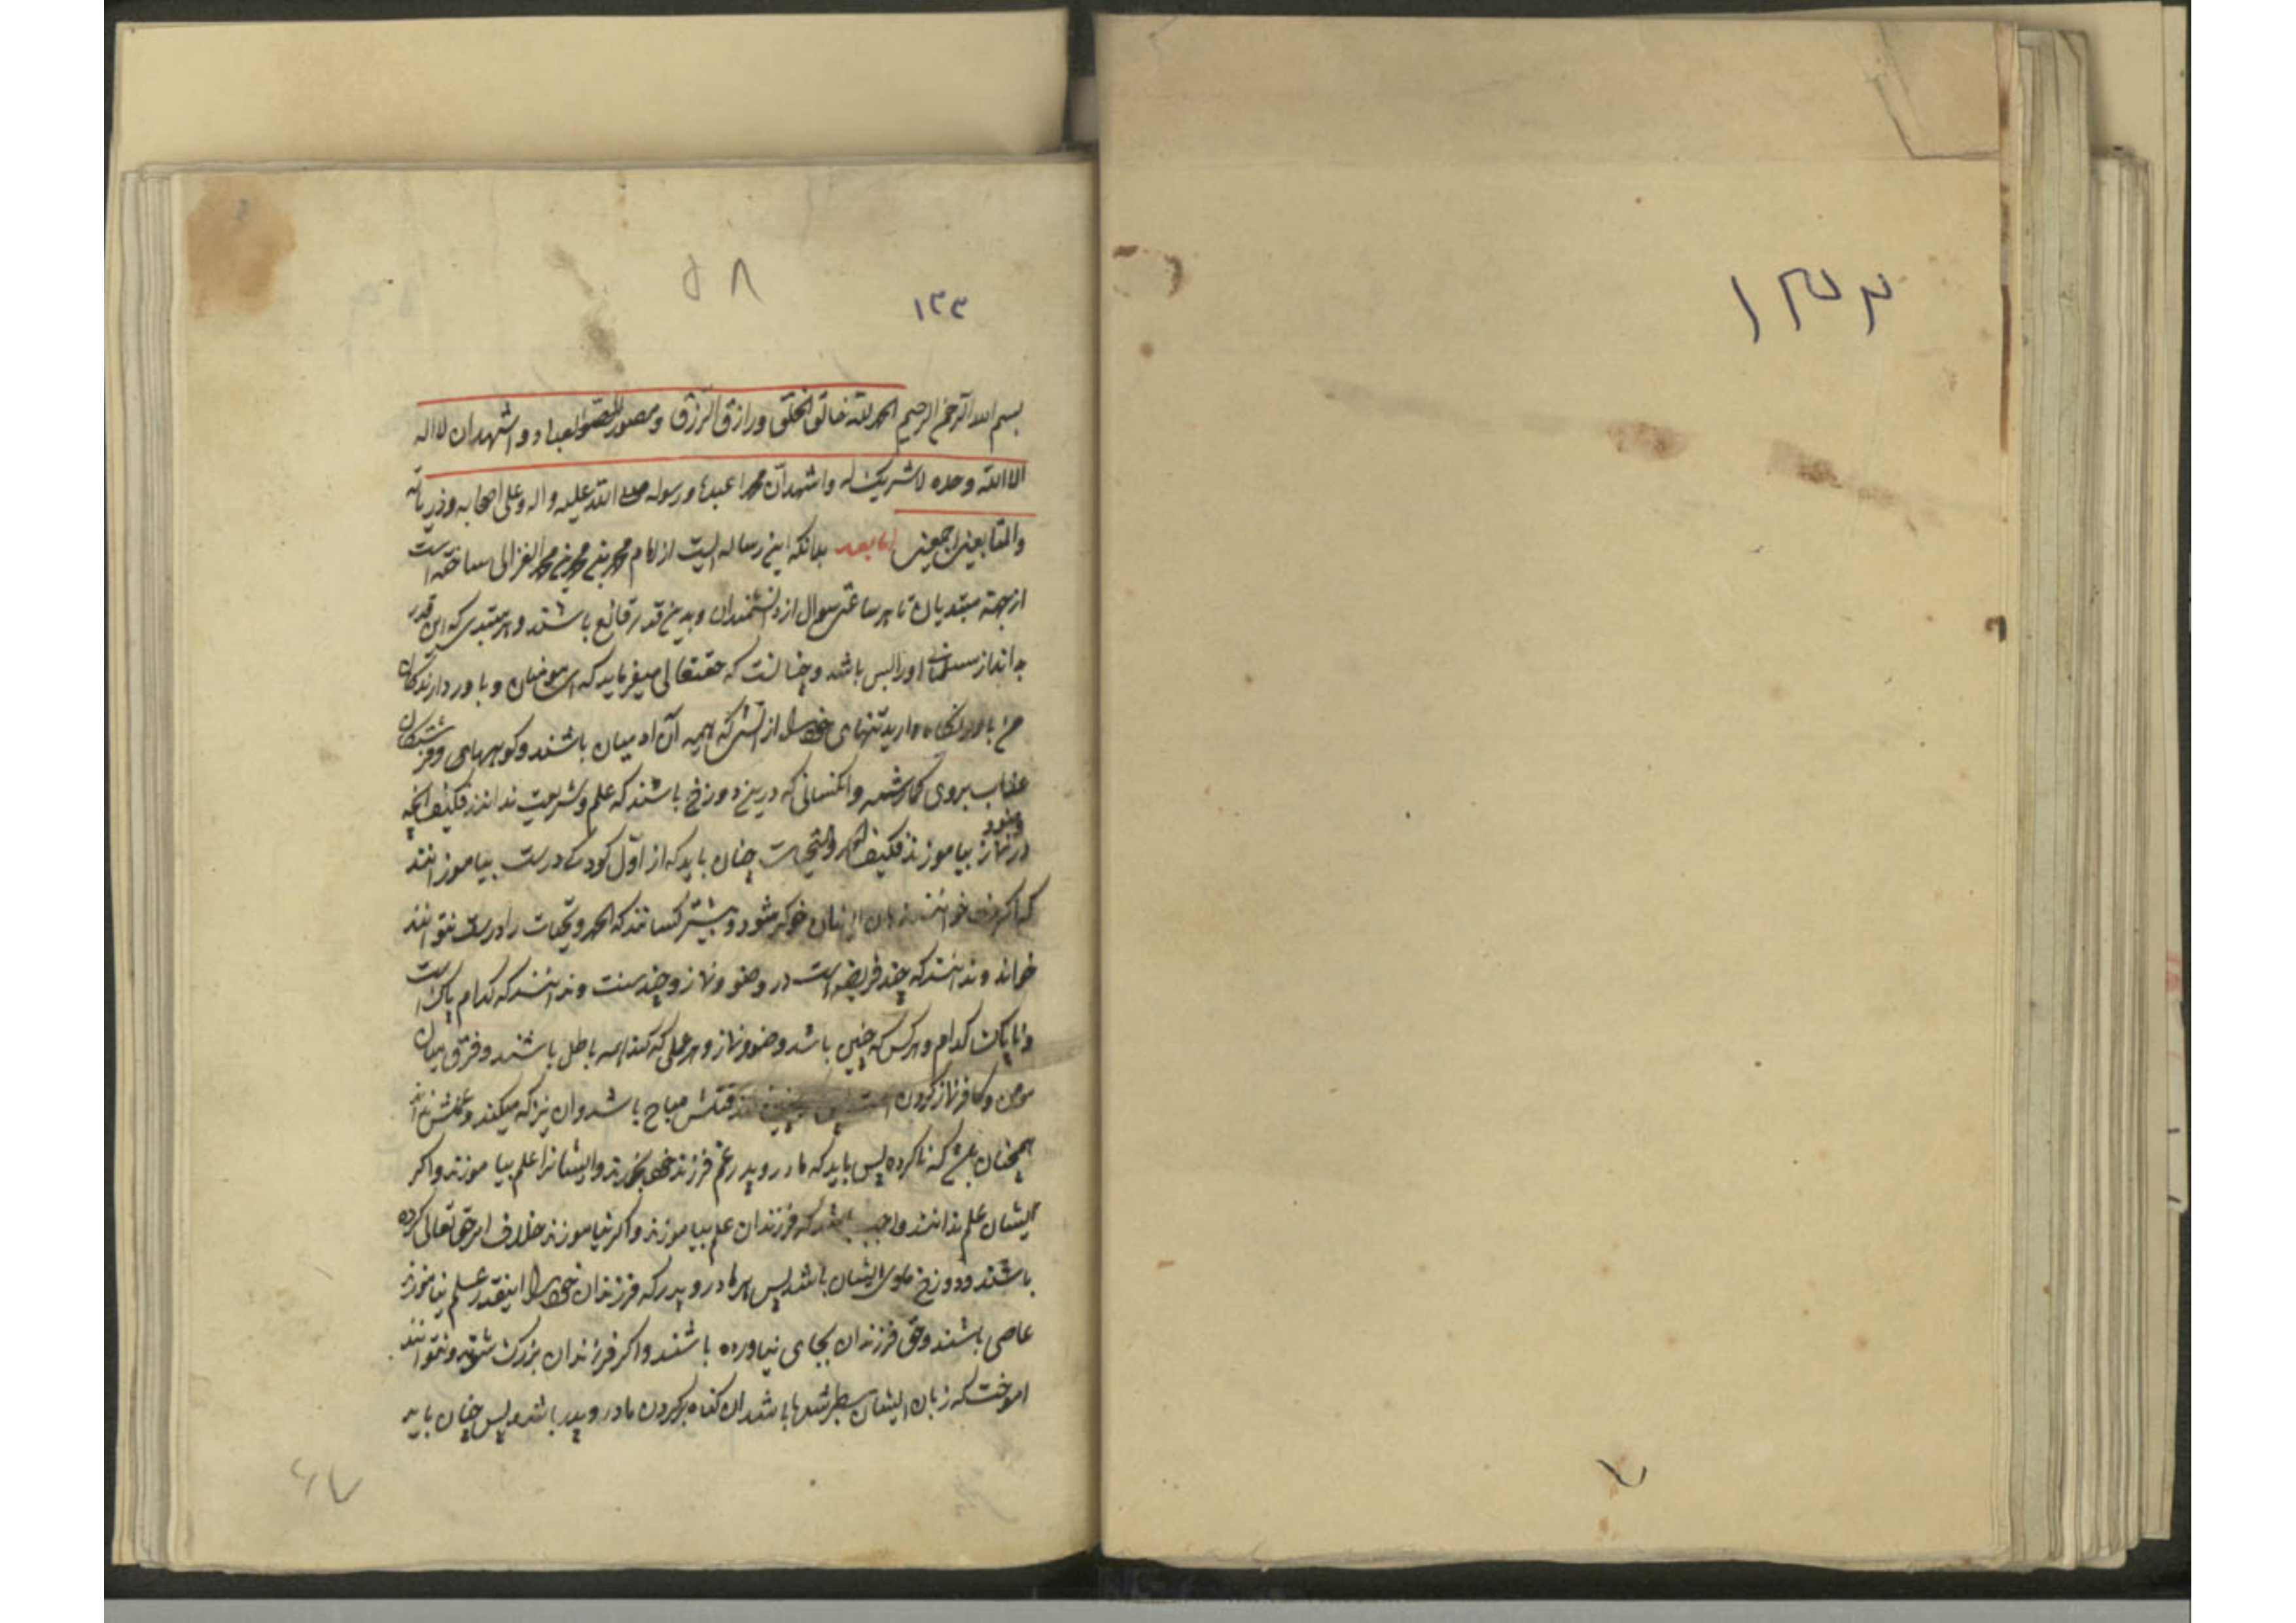 ۱۳۳
۷
۵۸
۱۳۳
بسم الله الرحمن الرحیم الحمد لله خالق الخلق ورازق الرزق ومصور العباد و اشهد ان لا اله
الا الله وحده لا شریک له واشهد ان محمدا عبده ورسوله صلی الله علیه واله وعلی اصحابه وذریاته
والتابعین اجمعین اما بعد بدانکه این رساله ایست از امام محمد بن محمد بن محمد الغزالی ساخته است
از جهة مبتدیان تا هر ساعتی سوال از دانشمندان وبدین قدر قانع باشند و هر مبتدی که این قدر
بداند از مسلمانی اورا بس باشد وچنانست که حقتعالی میفرماید که ای مومنان و باور دارندکان
من باور نکاه دارید تنهای خود را از آتشی که هیمه آن آدمیان باشند وکوههای وفرشتکان
عذاب بروی کماشته وآنکسانی که درین دوزخ باشند که علم وشریعت ندانند آنچه
در وضو نماز بیاموزند والتحیات چنان باید که از اول کودک درست بیاموزانند
که اکر خوانند زبان ایشان خوکر شود و بیشتر کسانند که الحمد وتحیات را درست نتوانند
خواند وندانند که چند فریضه است در وضو ونماز وچند سنت وندانند که کدام پاک است
وناپاک کدام وهر کس که چنین باشد وضو ونماز وهر عملی که کند همه باطل باشند وفرق میان
مومن وکافر نماز کردن است قتلش مباح باشد وان نیز که میکند
همچنان که ناکرده پس باید که مادر و پدر غم فرزند خود بخورند وایشانرا علم بیاموزند واکر
ایشان علم ندانند واجب باشد که فرزندان علم بیاموزند واکر نیاموزند خلاف امر حق تعالی کرده
باشند ودوزخ ماوی ایشان باشد پس هر مادر و پدر که فرزندان خود را اینقدر علم نیاموزند
عاصی باشند وحق فرزندان بجای نیاورده باشند واکر فرزندان بزرک شوند ونتوانند
اموخت که زبان ایشان باشد ان کناه بکردن مادر و پدر باشد پس چنان باید